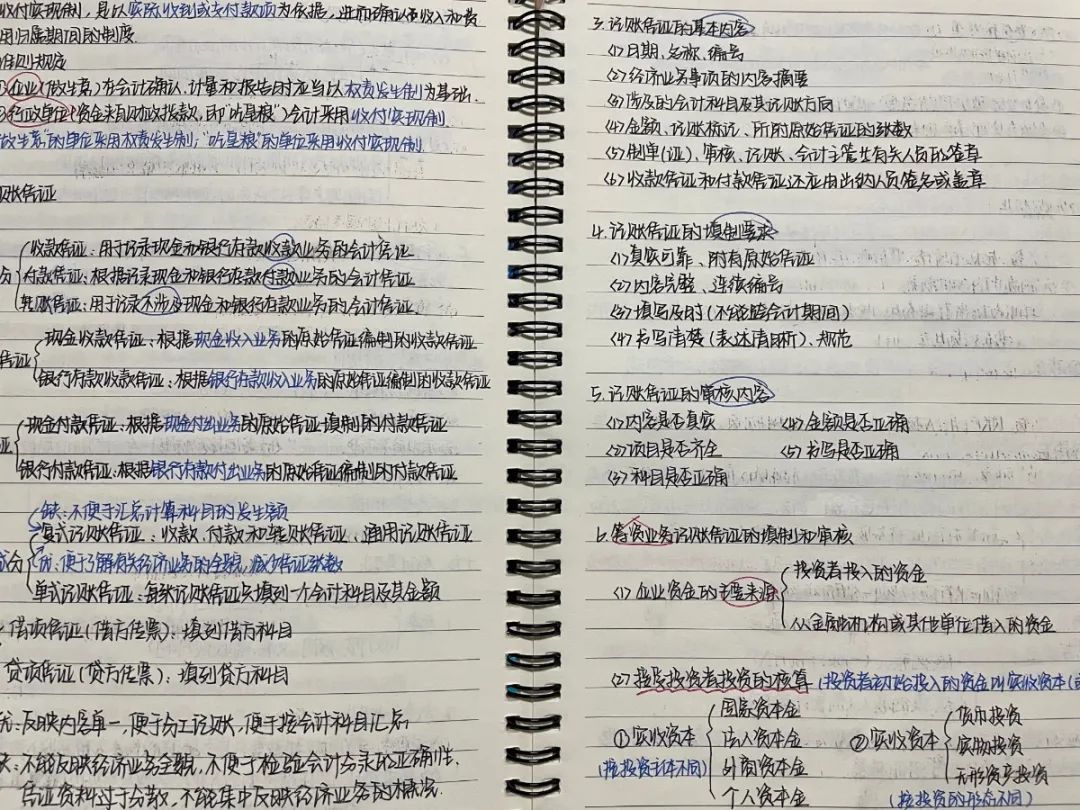 收付实现制，是以实际收到或支付款项为依据，进而确认由收入和费
用归属期间的制度.
准则规定
企业(做生意)在会计确认、计量和报告时应当以权责发生制为基础.
行政单位(资金来自财政拨款，即"吃皇粮")会计采用收付实现制.
做生意"的单位采用权责发生制；"吃皇粮"的单位采用收付实现制.
账凭证
收款凭证：用于记录现金和银行存款收款业务的会计凭证
付款凭证：根据记录现金和银行存款付款业务的会计凭证
转账凭证：用于记录不涉及现金和银行存款业务的会计凭证.
凭证
现金收款凭证：根据现金收入业务的原始凭证编制的收款凭证
银行存款收款凭证：根据银行存款收入业务的原始凭证编制的收款凭证
证
现金付款凭证：根据现金付出业务的原始凭证填制的付款凭证
银行付款凭证：根据银行存款付出业务的原始凭证编制的付款凭证
缺：不便于汇总计算科目的发生额
复式记账凭证：收款、付款和转账凭证、通用记账凭证
优：便于了解有关经济业务的全貌，减少凭证张数
单式记账凭证：每张记账凭证只填列一个会计科目及其金额
借项凭证(借方传票)：填列借方科目
贷项凭证(贷方传票)：填列贷方科目
优：反映内容单一，便于分工记账，便于按会计科目汇总
缺：不能反映经济业务全貌，不便于检验会计分录的正确性.
凭证资料过于分散，不能集中反映经济业务的概况.
3. 记账凭证的基本内容
<1>日期、名称、编号
<2>经济业务事项的内容摘要
<3>涉及的会计科目及其记账方向
<4>金额、记账标记、所附原始凭证的张数
<5>制单(证)、审核、记账、会计主管共有关人员的签章
<6>收款凭证和付款凭证还应由出纳人员签名或盖章
4. 记账凭证的填制要求
<1>真实可靠、附有原始凭证
<2>内容完整、连续编号
<3>填写及时(不能跨会计期间)
<4>书写清楚(表达清晰)、规范
5. 记账凭证的审核内容
<1>内容是否真实 <4>金额是否正确
<2>项目是否齐全 <5>书写是否正确
<3>科目是否正确
6. 筹资业务记账凭证的填制和审核
投资者投入的资金
<1>企业资金的主要来源
从金融机构或其他单位借入的资金
<2>接受投资者投资的核算(投资者初始投入的资金叫实收资本
国家资本金 货币投资
①实收资本 法人资本金 ②实收资本 实物投资
(按投资主体不同) 外商资本金 无形资产投资
个人资本金 (按投资的形态不同)